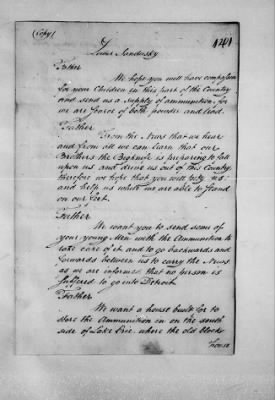 (Copy)
1401
Lower Sandusky
Father
We hope you will have compassion
for your Children in this part of the Country
and send us a supply of ammunition, for
we are scarce of both powder and lead.
Father
From the News that we hear
and from all we can learn that our
Brothers the Bigknife is preparing to fall
upon us and drive us out of this Country,
therefore we hope that you will pity us
and help us while we are able to stand
on our feet.
Father
We want you to send some of
your young Men with the Ammunition to
take care of it and to go backwards and
forwards between us to carry the News
as we are informed that no person is
suffered to go into Detroit
Father
We want a house built for to
store the Ammunition in on the south
side of Lake Erie where the old block
house